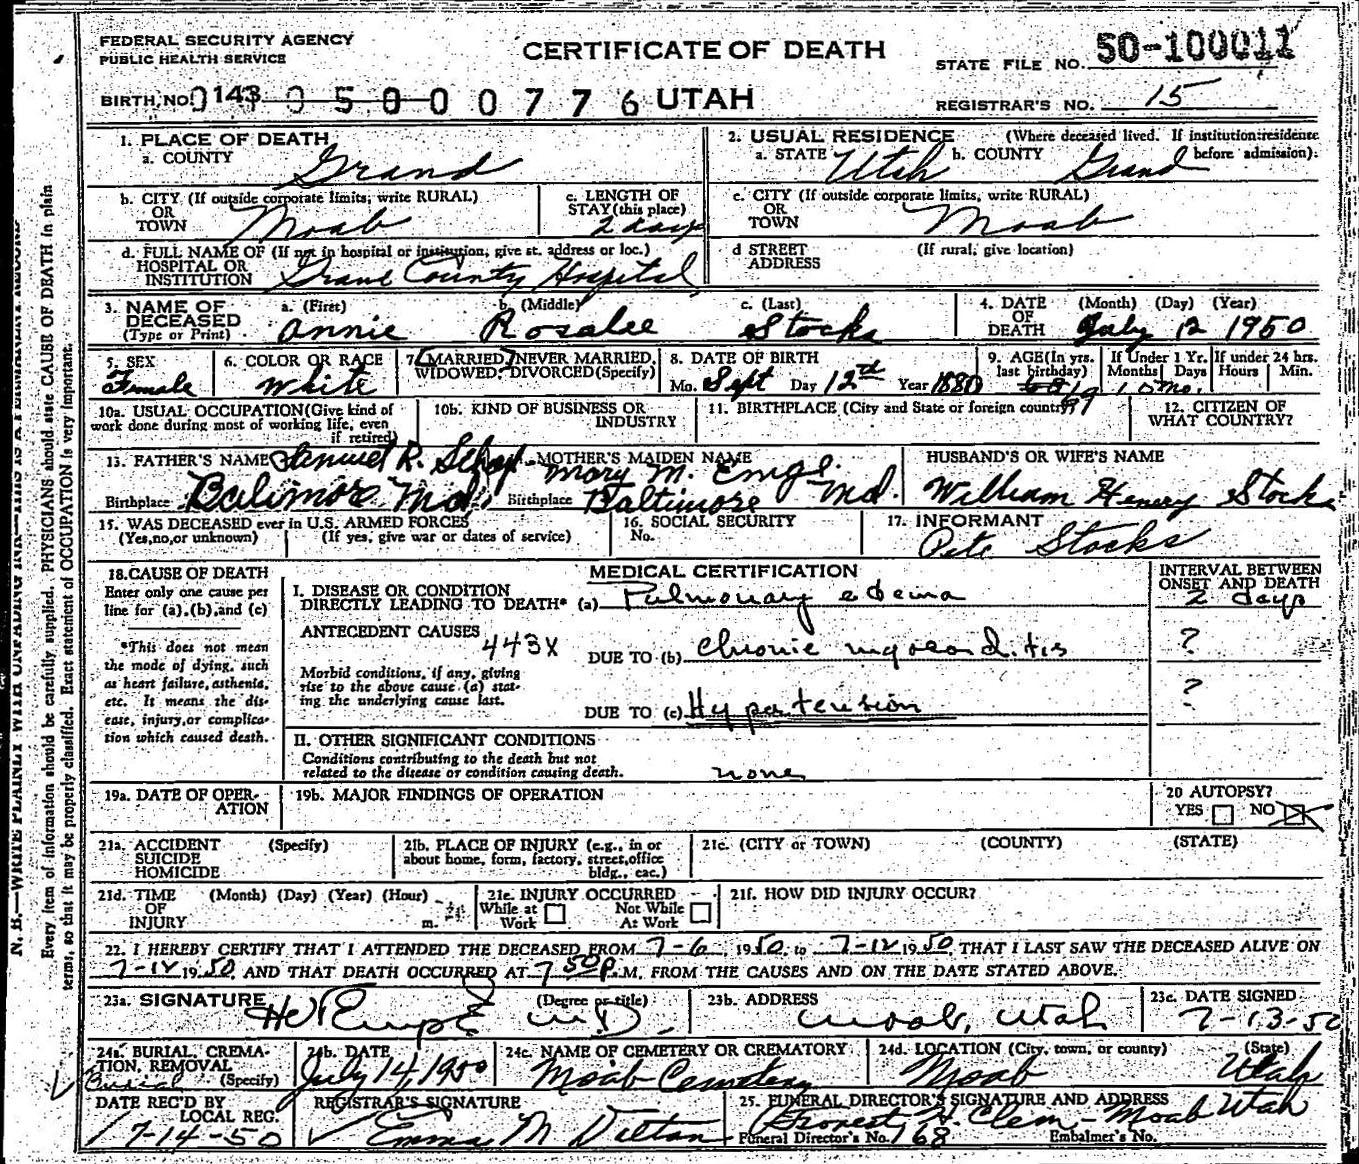 FEDERAL SECURITY AGENCY
PUBLIC HEALTH SERVICE
CERTIFICATE OF DEATH
STATE FILE NO. 50-100011
BIRTH NO. 0143 0500077 6 UTAH
REGISTRAR'S NO. 15
1. PLACE OF DEATH
a. COUNTY Grand
2. USUAL RESIDENCE (Where deceased lived. If institution:residence before admission).
a. STATE Utah b. COUNTY Grand
b. CITY (If outside corporate limits, write RURAL)
OR
TOWN Moab
c. LENGTH OF
STAY (this place)
2 days
c. CITY (If outside corporate limits, write RURAL)
OR
TOWN Moab
d. FULL NAME OF (If not in hospital or institution, give st. address or loc.)
HOSPITAL OR
INSTITUTION Grand County Hospital
d STREET (If rural, give location)
ADDRESS
3. NAME OF
DECEASED
(Type or Print)
a. (First) Annie
b. (Middle) Rosalee
c. (Last) Stocks
4. DATE (Month) (Day) (Year)
OF
DEATH July 12 1950
5. SEX
Female
6. COLOR OR RACE
White
7. MARRIED, NEVER MARRIED,
WIDOWED, DIVORCED (Specify)
8. DATE OF BIRTH
Mo. Sept Day 12th Year 1880
9. AGE (In yrs.
last birthday)
69
If Under 1 Yr.
Months Days
10 mo.
If under 24 hrs.
Hours Min.
10a. USUAL OCCUPATION (Give kind of
work done during most of working life, even
if retired)
10b. KIND OF BUSINESS OR
INDUSTRY
11. BIRTHPLACE (City and State or foreign country)
12. CITIZEN OF
WHAT COUNTRY?
13. FATHER'S NAME Samuel R.
Birthplace Baltimore Md.
MOTHER'S MAIDEN NAME
Mary M.
Birthplace Baltimore Md.
HUSBAND'S OR WIFE'S NAME
William Henry Stocks
15. WAS DECEASED ever in U.S. ARMED FORCES
(Yes,no,or unknown) (If yes, give war or dates of service)
16. SOCIAL SECURITY
No.
17. INFORMANT
Pete Stocks
18. CAUSE OF DEATH
Enter only one cause per
line for (a),(b),and (c)
*This does not mean
the mode of dying, such
as heart failure, asthenia,
etc. It means the dis-
ease, injury, or complica-
tion which caused death.
MEDICAL CERTIFICATION
I. DISEASE OR CONDITION
DIRECTLY LEADING TO DEATH* (a) Pulmonary edema
ANTECEDENT CAUSES
443X
DUE TO (b) Chronic myocarditis
Morbid conditions, if any, giving
rise to the above cause (a) stat-
ing the underlying cause last.
DUE TO (c) Hypertension
II. OTHER SIGNIFICANT CONDITIONS
Conditions contributing to the death but not
related to the disease or condition causing death.
none
INTERVAL BETWEEN
ONSET AND DEATH
2 days
?
?
19a. DATE OF OPER-
ATION
19b. MAJOR FINDINGS OF OPERATION
20 AUTOPSY?
YES NO
21a. ACCIDENT (Specify)
SUICIDE
HOMICIDE
21b. PLACE OF INJURY (e.g., in or
about home, form, factory, street,office
bldg., eac.)
21c. (CITY or TOWN) (COUNTY) (STATE)
21d. TIME (Month) (Day) (Year) (Hour)
OF
INJURY m.
21e. INJURY OCCURRED
While at Work
Not While At Work
21f. HOW DID INJURY OCCUR?
22. I HEREBY CERTIFY THAT I ATTENDED THE DECEASED FROM 7-6 1950 to 7-12 1950, THAT I LAST SAW THE DECEASED ALIVE ON
7-12 1950, AND THAT DEATH OCCURRED AT 7 50 P.M. FROM THE CAUSES AND ON THE DATE STATED ABOVE.
23a. SIGNATURE (Degree or title)
MD.
23b. ADDRESS
Moab, Utah
23c. DATE SIGNED
7-13-50
24a. BURIAL, CREMA-
TION, REMOVAL
(Specify)
Burial
24b. DATE
July 14, 1950
24c. NAME OF CEMETERY OR CREMATORY
Moab Cemetery
24d. LOCATION (City, town, or county) (State)
Moab Utah
DATE REC'D BY
LOCAL REG.
7-14-50
REGISTRAR'S SIGNATURE
Emma M Dalton
25. FUNERAL DIRECTOR'S SIGNATURE AND ADDRESS
Forest H. Clem - Moab Utah
Funeral Director's No. 168 Embalmer's No.
N. B.—WRITE PLAINLY WITH UNFADING INK—THIS IS A PERMANENT RECORD
Every item of information should be carefully supplied. PHYSICIANS should state CAUSE OF DEATH in plain
terms, so that it may be properly classified. Exact statement of OCCUPATION is very important.